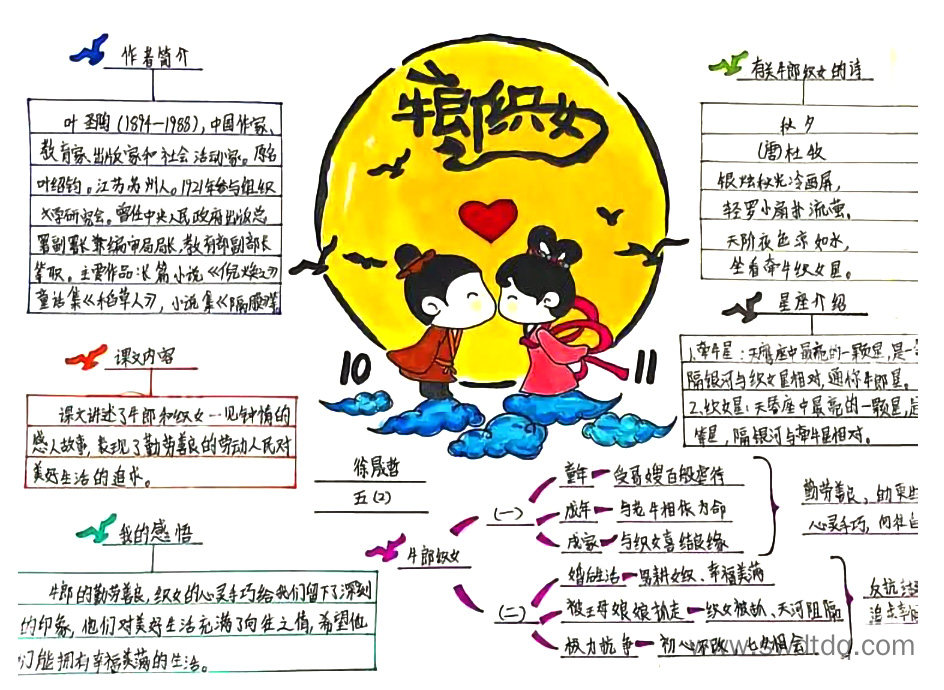 作者简介
叶圣陶(1894—1988),中国作家、
教育家、出版家和社会活动家。原名
叶绍钧。江苏苏州人。1921年参与组织
文学研究会。曾任中央人民政府出版总
署副署长兼编审局局长,教育部副部长
等职。主要作品:长篇小说《倪焕之》
童话集《稻草人》,小说集《隔膜》等。
课文内容
课文讲述了牛郎和织女一见钟情的
感人故事,表现了勤劳善良的劳动人民对
美好生活的追求。
我的感悟
牛郎的勤劳善良,织女的心灵手巧给我们留下了深刻
的印象,他们对美好生活充满了向往之情,希望他
们能拥有幸福美满的生活。
牛郎织女
10
11
徐晟哲
五(2)
有关牛郎织女的诗
秋夕
(唐)杜牧
银烛秋光冷画屏,
轻罗小扇扑流萤。
天阶夜色凉如水,
坐看牵牛织女星。
星座介绍
1.牵牛星:天鹰座中最亮的一颗星,是
隔银河与织女星相对,通称牛郎星。
2.织女星:天琴座中最亮的一颗星,是
等星,隔银河与牵牛星相对。
牛郎织女
(一)
童年 受哥嫂百般虐待
成年 与老牛相依为命
成家 与织女喜结良缘
勤劳善良、
心灵手巧,向往自
(二)
婚后生活 男耕女织、幸福美满
被王母娘娘抓走 织女被抓、天河阻隔
极力抗争 初心不改 七夕相会
反抗
追求幸
www.swdtdq.com